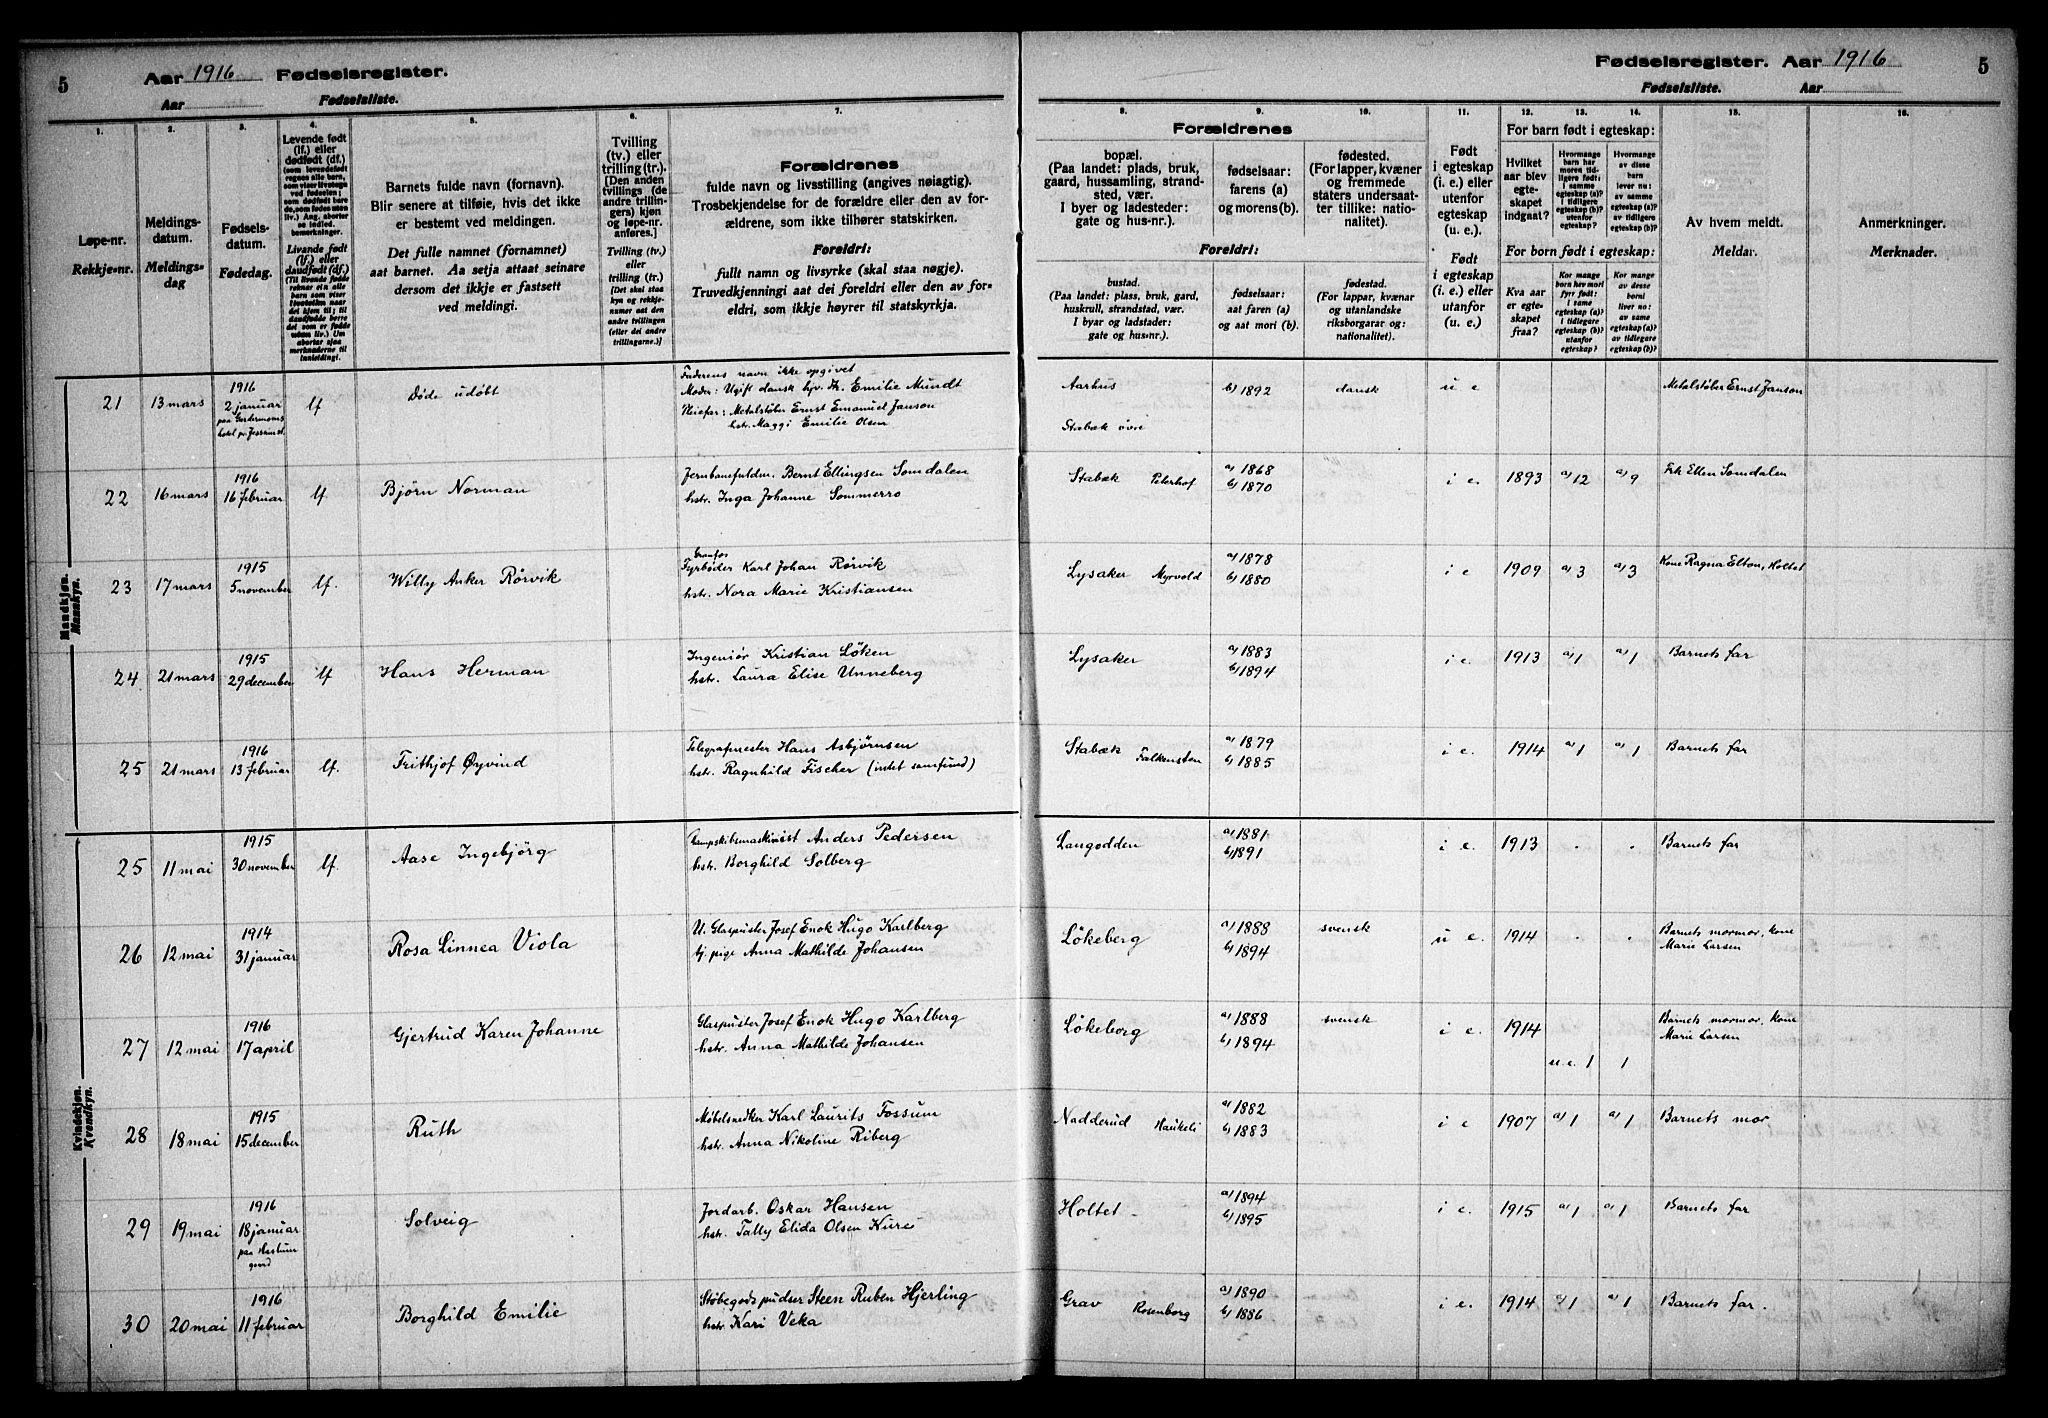 5
Aar 1916 Fødselsregister.
Aar Fødselsliste.
Fødselsregister. Aar 1916
5
Fødselsliste. Aar
1.
Løpe-nr.
Rekkje-nr.
2.
Meldings-
datum.
Meldings-
dag
3.
Fødsels-
datum.
Fødedag.
4.
Levende født
(lf.) eller
dødfødt (df.)
5.
Barnets fulde navn (fornavn).
Blir senere at tilføie, hvis det ikke
er bestemt ved meldingen.
Det fulle namnet (fornamnet)
aat barnet. Aa setja attaat seinare
dersom det ikkje er fastsett
ved meldingi.
6.
Tvilling
(tv.) eller
trilling (tr.).
[Den anden
tvillings (de
andre trillin-
gers) kjøn
og løpe-nr.
anføres.]
Tvilling (tv.)
eller
trilling (tr.)
7.
Forældrenes
fulde navn og livsstilling (angives nøiagtig).
Trosbekjendelse for de forældre eller den av for-
ældrene, som ikke tilhører statskirken.
Foreldri:
fullt namn og livsyrke (skal staa nøgje).
Truvedkjenningi aat dei foreldri eller den av for-
eldri, som ikkje høyrer til statskyrkja.
8.
Forældrenes
bopæl.
(Paa landet: plads, bruk,
gaard, hussamling, strand-
sted, vær.
I byer og ladesteder:
gate og hus-nr.).
Foreldri:
bustad.
(Paa landet: plass, bruk, gard,
huskrull, strandstad, vær.
I byar og ladstader:
gate og hus-nr.).
9.
fødselsaar:
farens (a)
og morens (b).
fødselsaar:
aat faren (a)
og aat mori (b).
10.
fødested.
(For lapper, kvæner
og fremmede
staters undersaat-
ter tillike: natio-
nalitet).
fødestad.
(For lappar, kvænar
og utanlandske
riksborgarar og:
nationalitet).
11.
Født
i egteskap
(i. e.) eller
utenfor
egteskap
(u. e.).
Født
i egteskap
(i. e.) eller
utanfor
(u. e.).
12.
For barn født i egteskap:
Hvilket
aar blev
egte-
skapet
indgaat?
For born født i egteskap:
Kva aar
er egte-
skapet
fraa?
13.
14.
15.
Av hvem meldt.
Meldar.
16.
Anmerkninger.
Merknader.
Mandkjøn.
Mannkyn.
21 13 mars 1916 2 januar lf Døde udøbt
Faderens navn ikke opgivet
Moder: Ugift dansk Emilie Mundt
Pleiefar: Metalstøber Ernst Emanuel Janson
hstr. Maggi Emilie Olsen
Aarhus
Stabæk øvre b) 1892 dansk u e Metalstøber Ernst Janson
22 16 mars 1916 16 februar lf Bjørn Norman
Jernbanefuldm. Bernt Ellingsen Somdalen
hstr. Inga Johanne Sommerro
Stabæk Peterhof a) 1868 b) 1870 i e. 1893 a) 12 a) 9 Frk Ellen Somdalen
23 17 mars 1915 5 november lf. Willy Anker Rørvik
Granfos
Fyrbøder Karl Johan Rørvik
hstr. Nora Marie Kristiansen
Lysaker Myrvold a) 1878 b) 1880 i e 1909 a) 3 a) 3 Kone Ragna Elton, Holtet
24 21 mars 1915 29 december lf Hans Herman
Ingeniør Kristian Løken
hstr. Laura Elise Unneberg
Lysaker a) 1883 b) 1894 i e. 1913 a) 1 a) 1 Barnets far
25 21 mars 1916 13 februar lf. Frithjof Øyvind
Telegrafmester Hans Asbjørnsen
hstr. Ragnhild Fischer (intet samfund)
Stabæk Falkensten a) 1879 b) 1885 i e. 1914 a) 1 a) 1 Barnets far
Kvindekjøn.
Kvendkyn.
25 11 mai 1915 30 november lf. Aase Ingebjørg
Dampskibsmaskinist Anders Pedersen
hstr. Borghild Solberg
Langodden a) 1881 b) 1891 i e. 1913 . . Barnets far
26 12 mai 1914 31 januar Rosa Linnea Viola
U. Glaspuster Josef Enok Hugo Karlberg
tj. pige Anna Mathilde Johansen
Løkeberg a) 1888 b) 1894 svensk u e. 1914 . . Barnets mormor, kone
Marie Larsen
27 12 mai 1916 17 april Gjertrud Karen Johanne
Glaspuster Josef Enok Hugo Karlberg
hstr. Anna Mathilde Johansen
Løkeberg a) 1888 b) 1894 svensk i e. 1914 u.e. 1 1 Barnets mormor, kone
Marie Larsen
28 18 mai 1915 15 december Ruth
Møbelsnedker Karl Laurits Fossum
hstr. Anna Nikoline Riberg
Nadderud Haukeli a) 1882 b) 1883 i e 1907 a) 1 a) 1 Barnets mor
29 19 mai 1916 18 januar Solveig
Jordarb. Oskar Hansen
hstr. Tally Elida Olsen Kure
Holtet a) 1894 b) 1895 i e. 1915 a) 1 a) 1 Barnets far
30 20 mai 1916 11 februar Borghild Emilie
Støbegodspudser Steen Ruben Hjerling
hstr. Kari Veka
Grav Rosenborg a) 1890 b) 1886 i e. 1914 a) 1 a) 1 Barnets far.